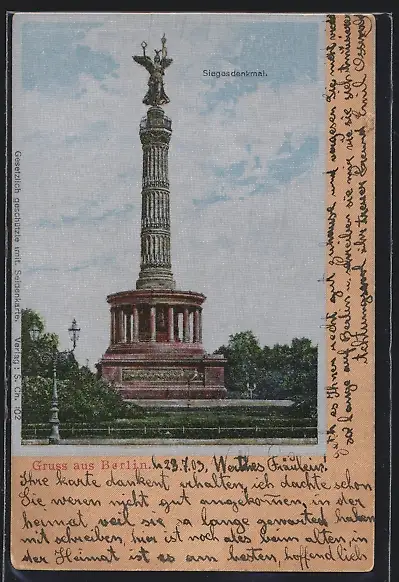 Siegesdenkmal.
Gesetzlich geschützte imit. Seidenkarte. Verlag: S. Ch. 102
Gruss aus Berlin. 23.7.03, Werthes Fräulein
Ihre karte dankent erhalten, ich dachte schon
Sie weren nicht gut angekomen, in der
heimat weil sie so lange gewartet haben
mit schreiben, hier ist noch ales beim alten, in
der Heimat ist es am besten, hoffendlich
es Ihnen recht gut zuhause und vergesen Sie nicht
so lange auf Berlin u. schreiben sie mir wie sie sich
achtungsvoll ihr treuer Freund Emil